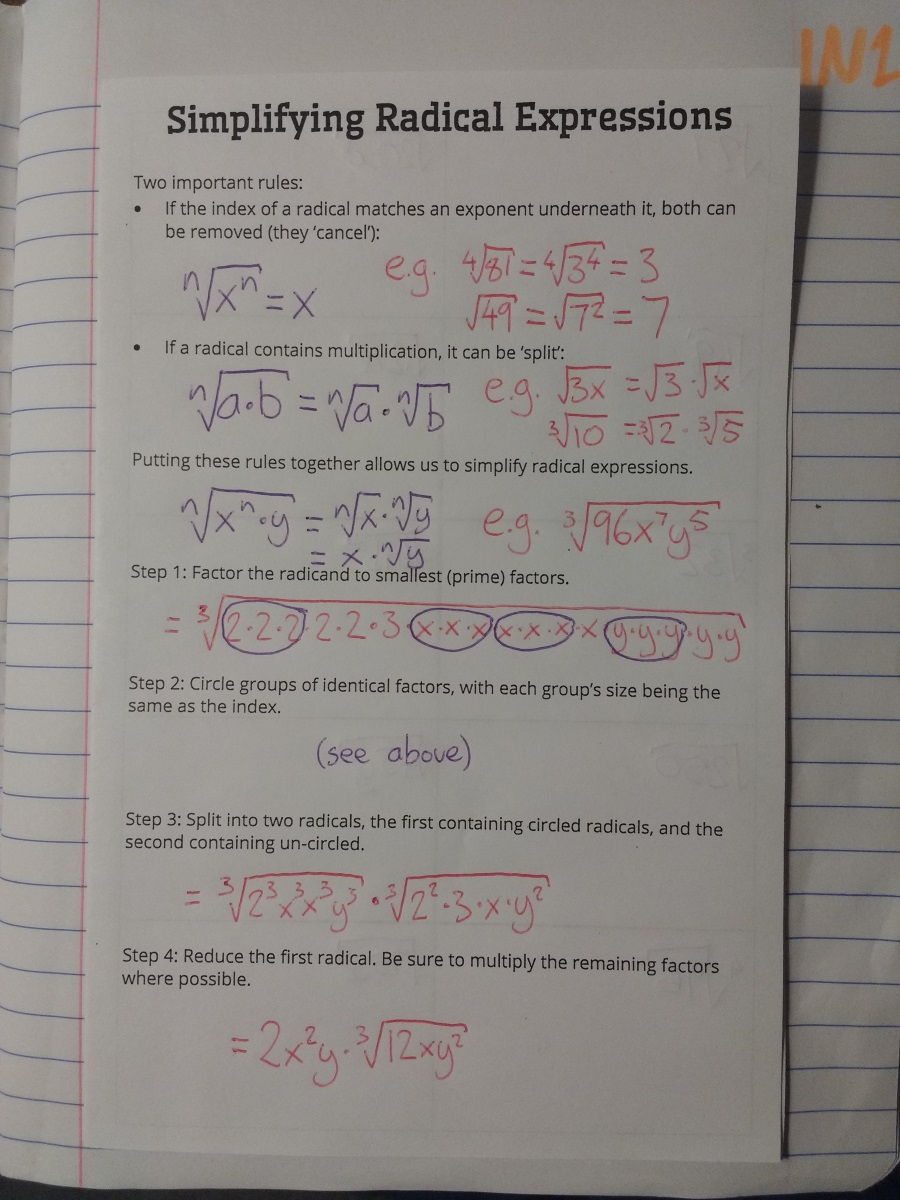 IN1
Simplifying Radical Expressions
Two important rules:
• If the index of a radical matches an exponent underneath it, both can
be removed (they ‘cancel’):
ⁿ√(xⁿ) = x
e.g. ⁴√81 = ⁴√3⁴ = 3
√49 = √7² = 7
• If a radical contains multiplication, it can be ‘split’:
ⁿ√(a·b) = ⁿ√a · ⁿ√b
e.g. √(3x) = √3 · √x
³√10 = ³√2 · ³√5
Putting these rules together allows us to simplify radical expressions.
ⁿ√(xⁿ·y) = ⁿ√x · ⁿ√y
= x · ⁿ√y
e.g. ³√(96x⁷y⁵)
Step 1: Factor the radicand to smallest (prime) factors.
= ³√(2·2·2·2·2·3·x·x·x·x·x·x·x·y·y·y·y·y)
Step 2: Circle groups of identical factors, with each group’s size being the
same as the index.
(see above)
Step 3: Split into two radicals, the first containing circled radicals, and the
second containing un-circled.
= ³√(2³x³x³y³) · ³√(2²·3·x·y²)
Step 4: Reduce the first radical. Be sure to multiply the remaining factors
where possible.
= 2x²y · ³√(12xy²)